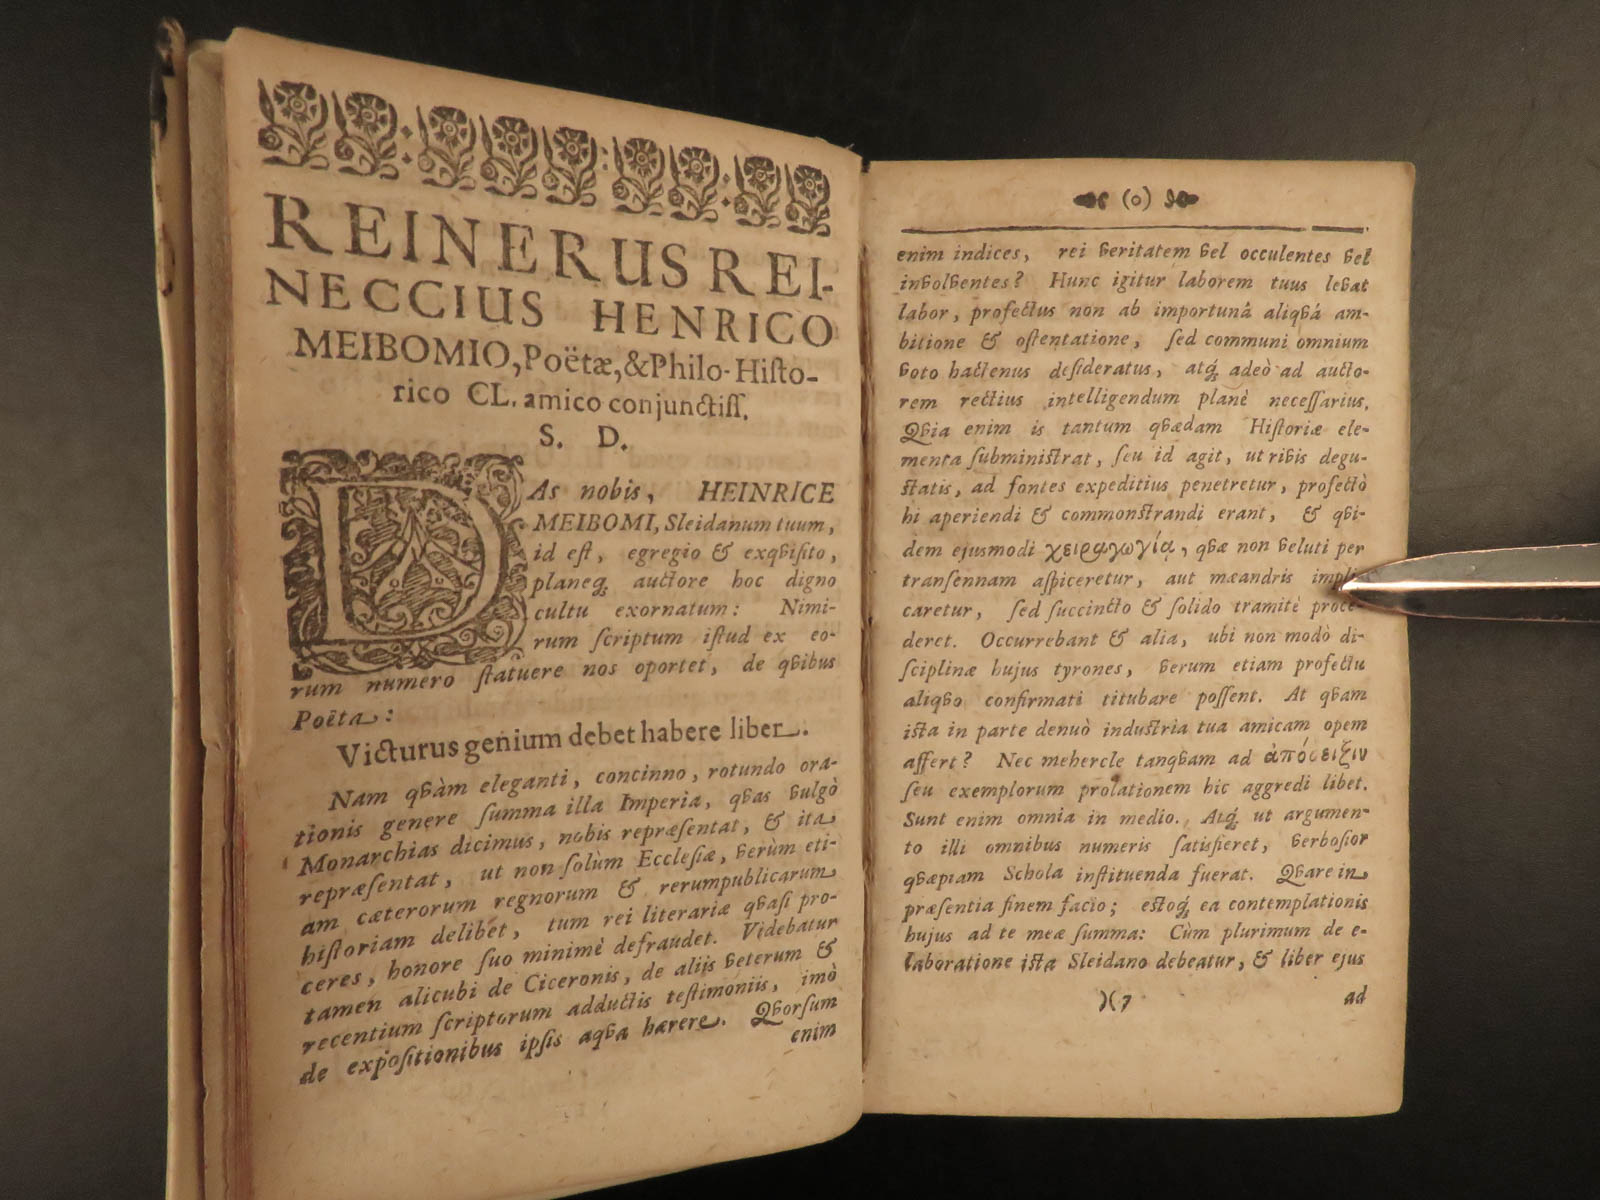 REINERUS REI-
NECCIUS HENRICO
MEIBOMIO, Poëtæ, & Philo-Histo-
rico CL. amico conjunctiss.
S. D.
DAs nobis, HEINRICE
MEIBOMI, Sleidanum tuum,
id est, egregio & exqvisito,
planeq; auctore hoc digno
cultu exornatum: Nimi-
rum scriptum istud ex eo-
rum numero statuere nos oportet, de qvibus
Poëta:
Victurus genium debet habere liber.
Nam qvàm eleganti, concinno, rotundo ora-
tionis genere summa illa Imperia, qvas vulgò
Monarchias dicimus, nobis repræsentat, & ita
repræsentat, ut non solùm Ecclesiæ, verùm eti-
am cæterorum regnorum & rerumpublicarum
historiam delibet, tum rei literariæ qvasi pro-
ceres, honore suo minimè defraudet. Videbatur
tamen alicubi de Ciceronis, de aliis veterum &
recentium scriptorum adductis testimoniis, imò
de expositionibus ipsis aqva hærere. Qvorsum
enim
(o)
enim indices, rei veritatem vel occulentes vel
involventes? Hunc igitur laborem tuus levat
labor, profectus non ab importunâ aliqvá am-
bitione & ostentatione, sed communi omnium
voto hactenus desideratus, atq; adeò ad aucto-
rem rectius intelligendum planè necessarius.
Qvia enim is tantum qvædam Historiæ ele-
menta subministrat, seu id agit, ut rivis degu-
statis, ad fontes expeditius penetretur, profectò
hi aperiendi & commonstrandi erant, & qvi-
dem ejusmodi χειραγωγίᾳ, qvæ non veluti per
transennam aspiceretur, aut mæandris impli-
caretur, sed succincto & solido tramite proce-
deret. Occurrebant & alia, ubi non modò di-
sciplinæ hujus tyrones, verum etiam profectu
aliqvo confirmati titubare possent. At qvam
ista in parte denuò industria tua amicam opem
affert? Nec mehercle tanqvam ad ἀπόδειξιν
seu exemplorum prolationem hic aggredi libet.
Sunt enim omnia in medio. Atq; ut argumen-
to illi omnibus numeris satisfieret, verbosior
qvæpiam Schola instituenda fuerat. Qvare in
præsentia finem facio; estoq; ea contemplationis
hujus ad te meæ summa: Cùm plurimum de e-
laboratione ista Sleidano debeatur, & liber ejus
)( 7 ad